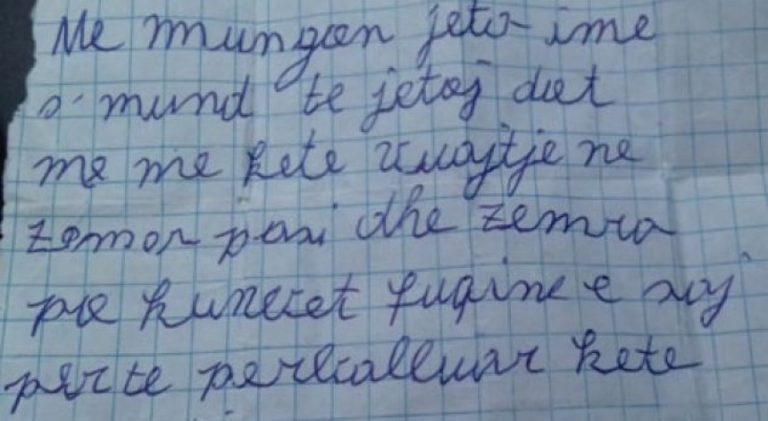 Me mungon jeta ime
s' mund te jetoj dot
me me kete vuajtje ne
zemer pasi dhe zemra
po kursehet fuqine e saj
per te perballuar kete